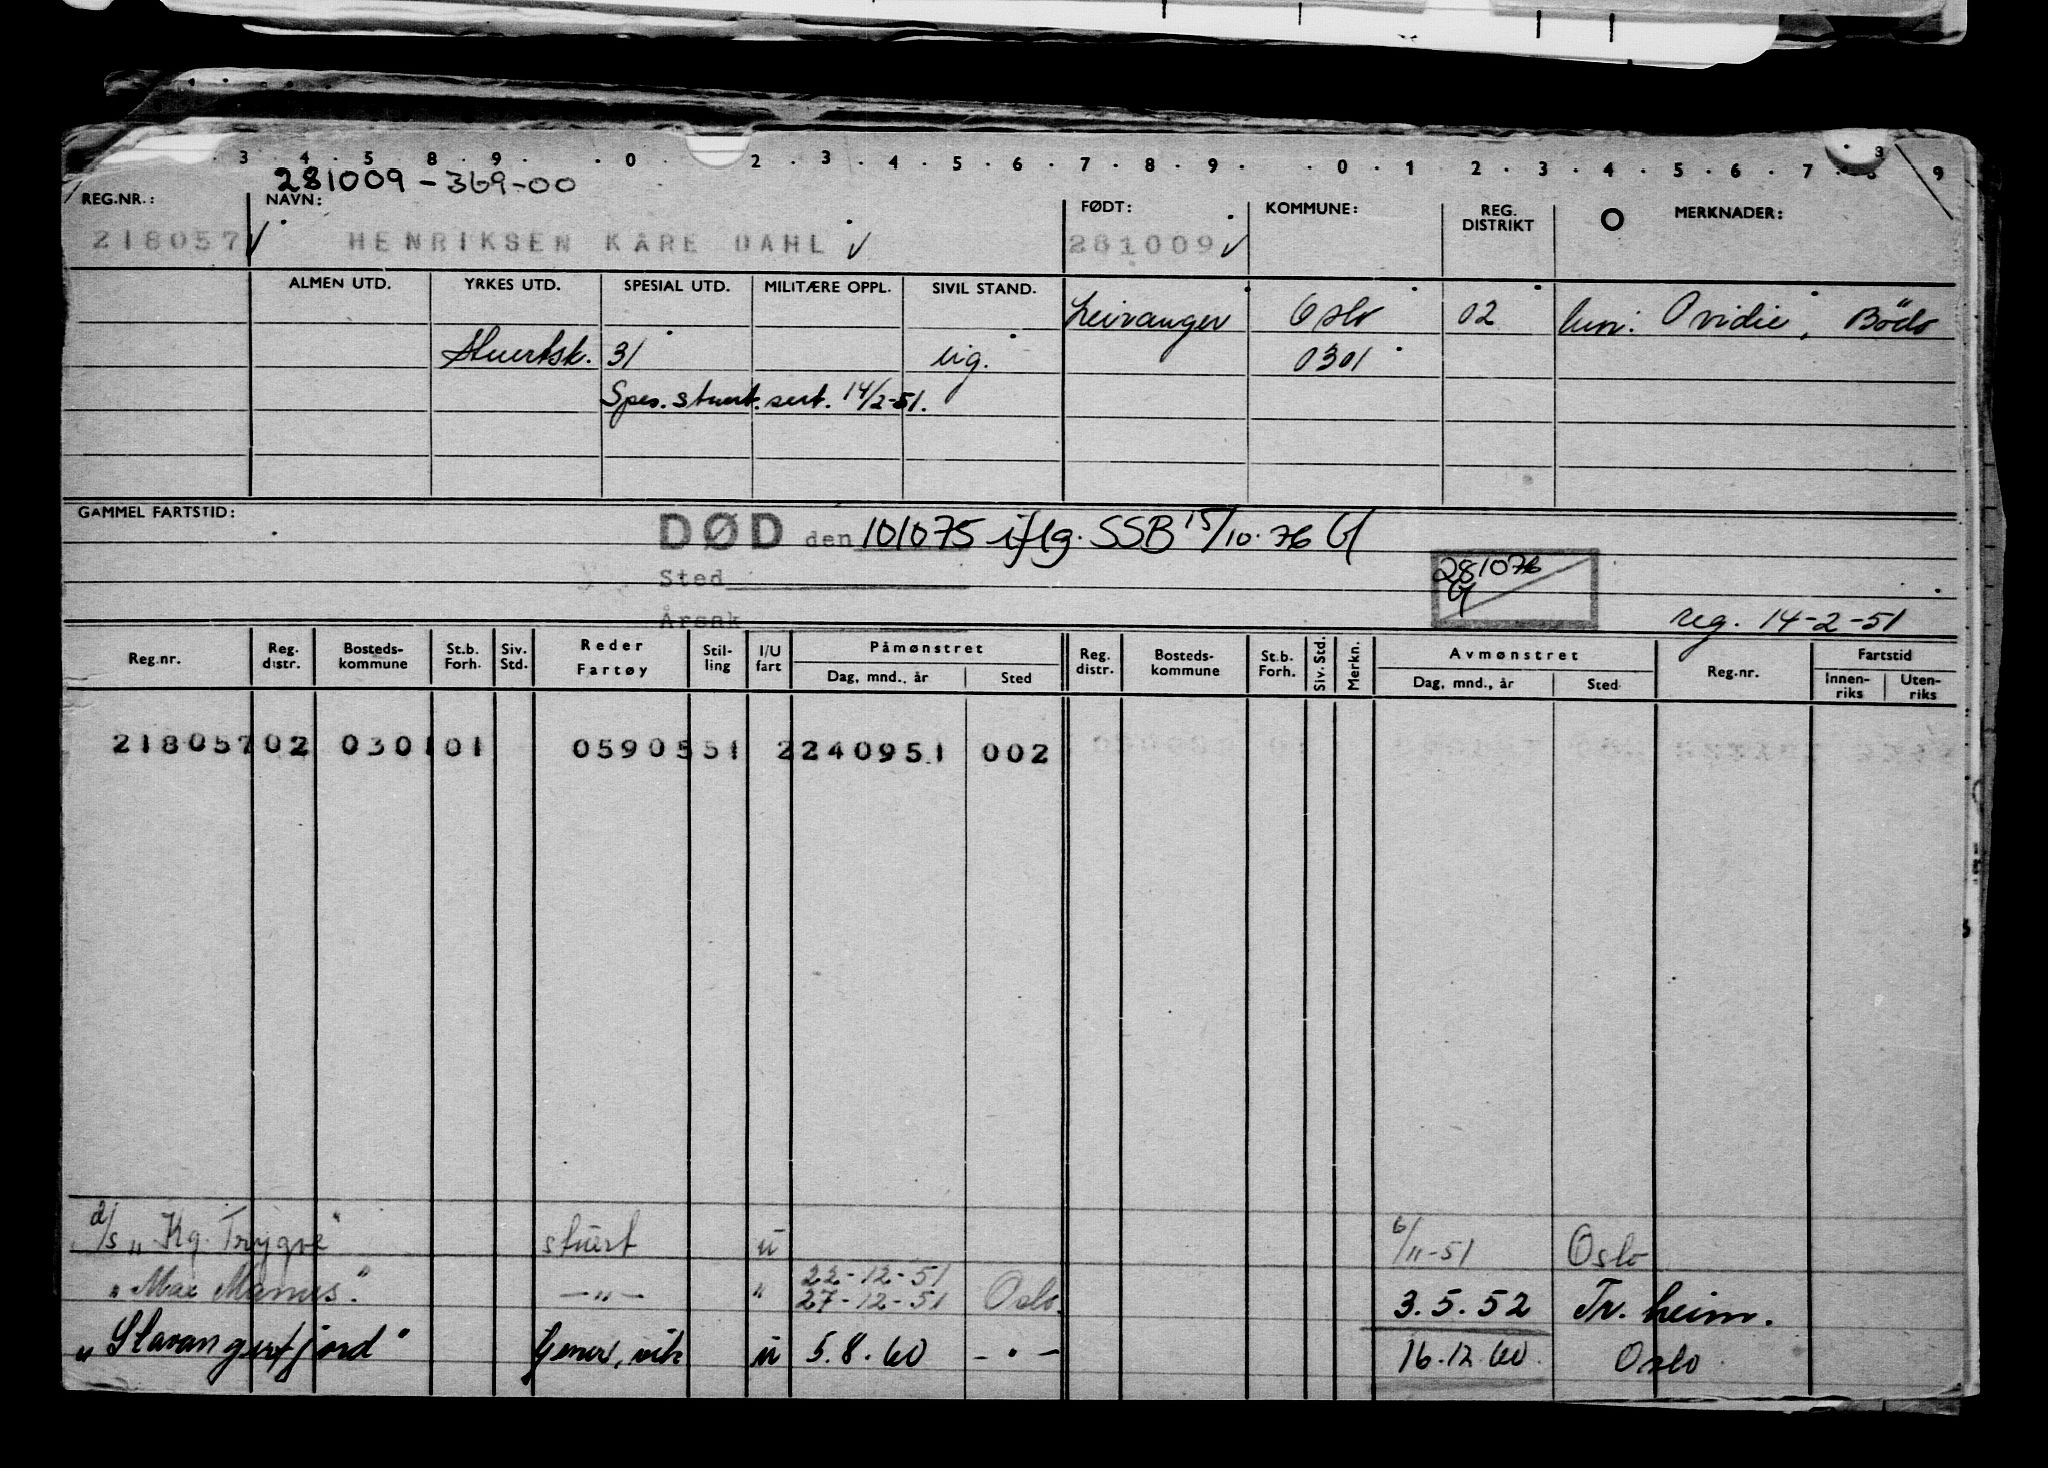 3 . 4 . 5 . 8 . 9 . . 0 . 2 . 3 . 4 . 5 . 6 . 7 . 8 . 9 . . 0 . 1 . 2 . 3 . 4 . 5 . 6 . 7 . 8 . 9
281009-369-00
REG.NR.: NAVN: FØDT: KOMMUNE: REG. DISTRIKT MERKNADER:
218057 HENRIKSEN KÅRE DAHL 281009
ALMEN UTD. YRKES UTD. SPESIAL UTD. MILITÆRE OPPL. SIVIL STAND.
Leiranger Oslo 02 Ovidie, Bodö
Stuertsk. 31 ug. 0301
Spes. stuert. sert. 14/2-51.
GAMMEL FARTSTID:
DØD den 101075 iflg. SSB 15/10.76
Sted
281076
Årsak
reg. 14-2-51
Reg.nr. Reg. distr. Bosteds- kommune St.b. Forh. Siv. Std. Reder Fartøy Stil- ling I/U fart Påmønstret Reg. distr. Bosteds- kommune St.b. Forh. Siv. Std. Merkn. Avmønstret Reg.nr. Fartstid
Dag, mnd., år Sted Dag, mnd., år Sted Innen- riks Uten- riks
218057 02 0301 01 0590551 2240951 002
d/s "Kg. Trygve" stuert u 6/11-51 Oslo
"Max Manus." -"- " 22-12-51 27-12-51 Oslo. 3.5.52 Tr.heim.
"Stavangerfjord" u 5.8.60 -"- 16.12.60. Oslo